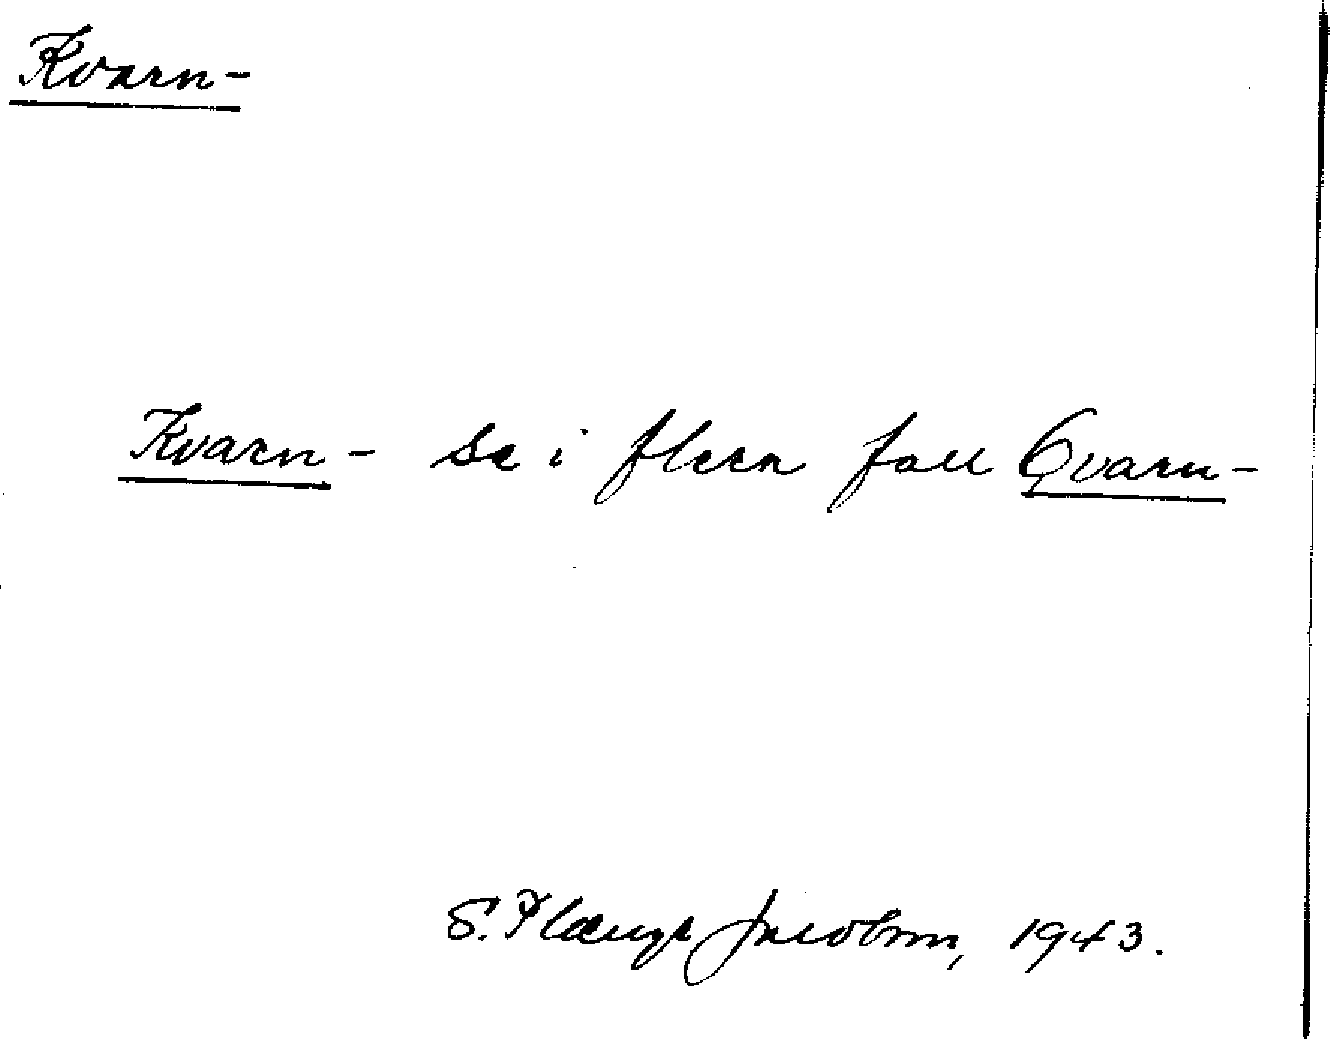 Kvarn-
Kvarn- se i flera fall Qvarn-
S. Jacobson, 1943.